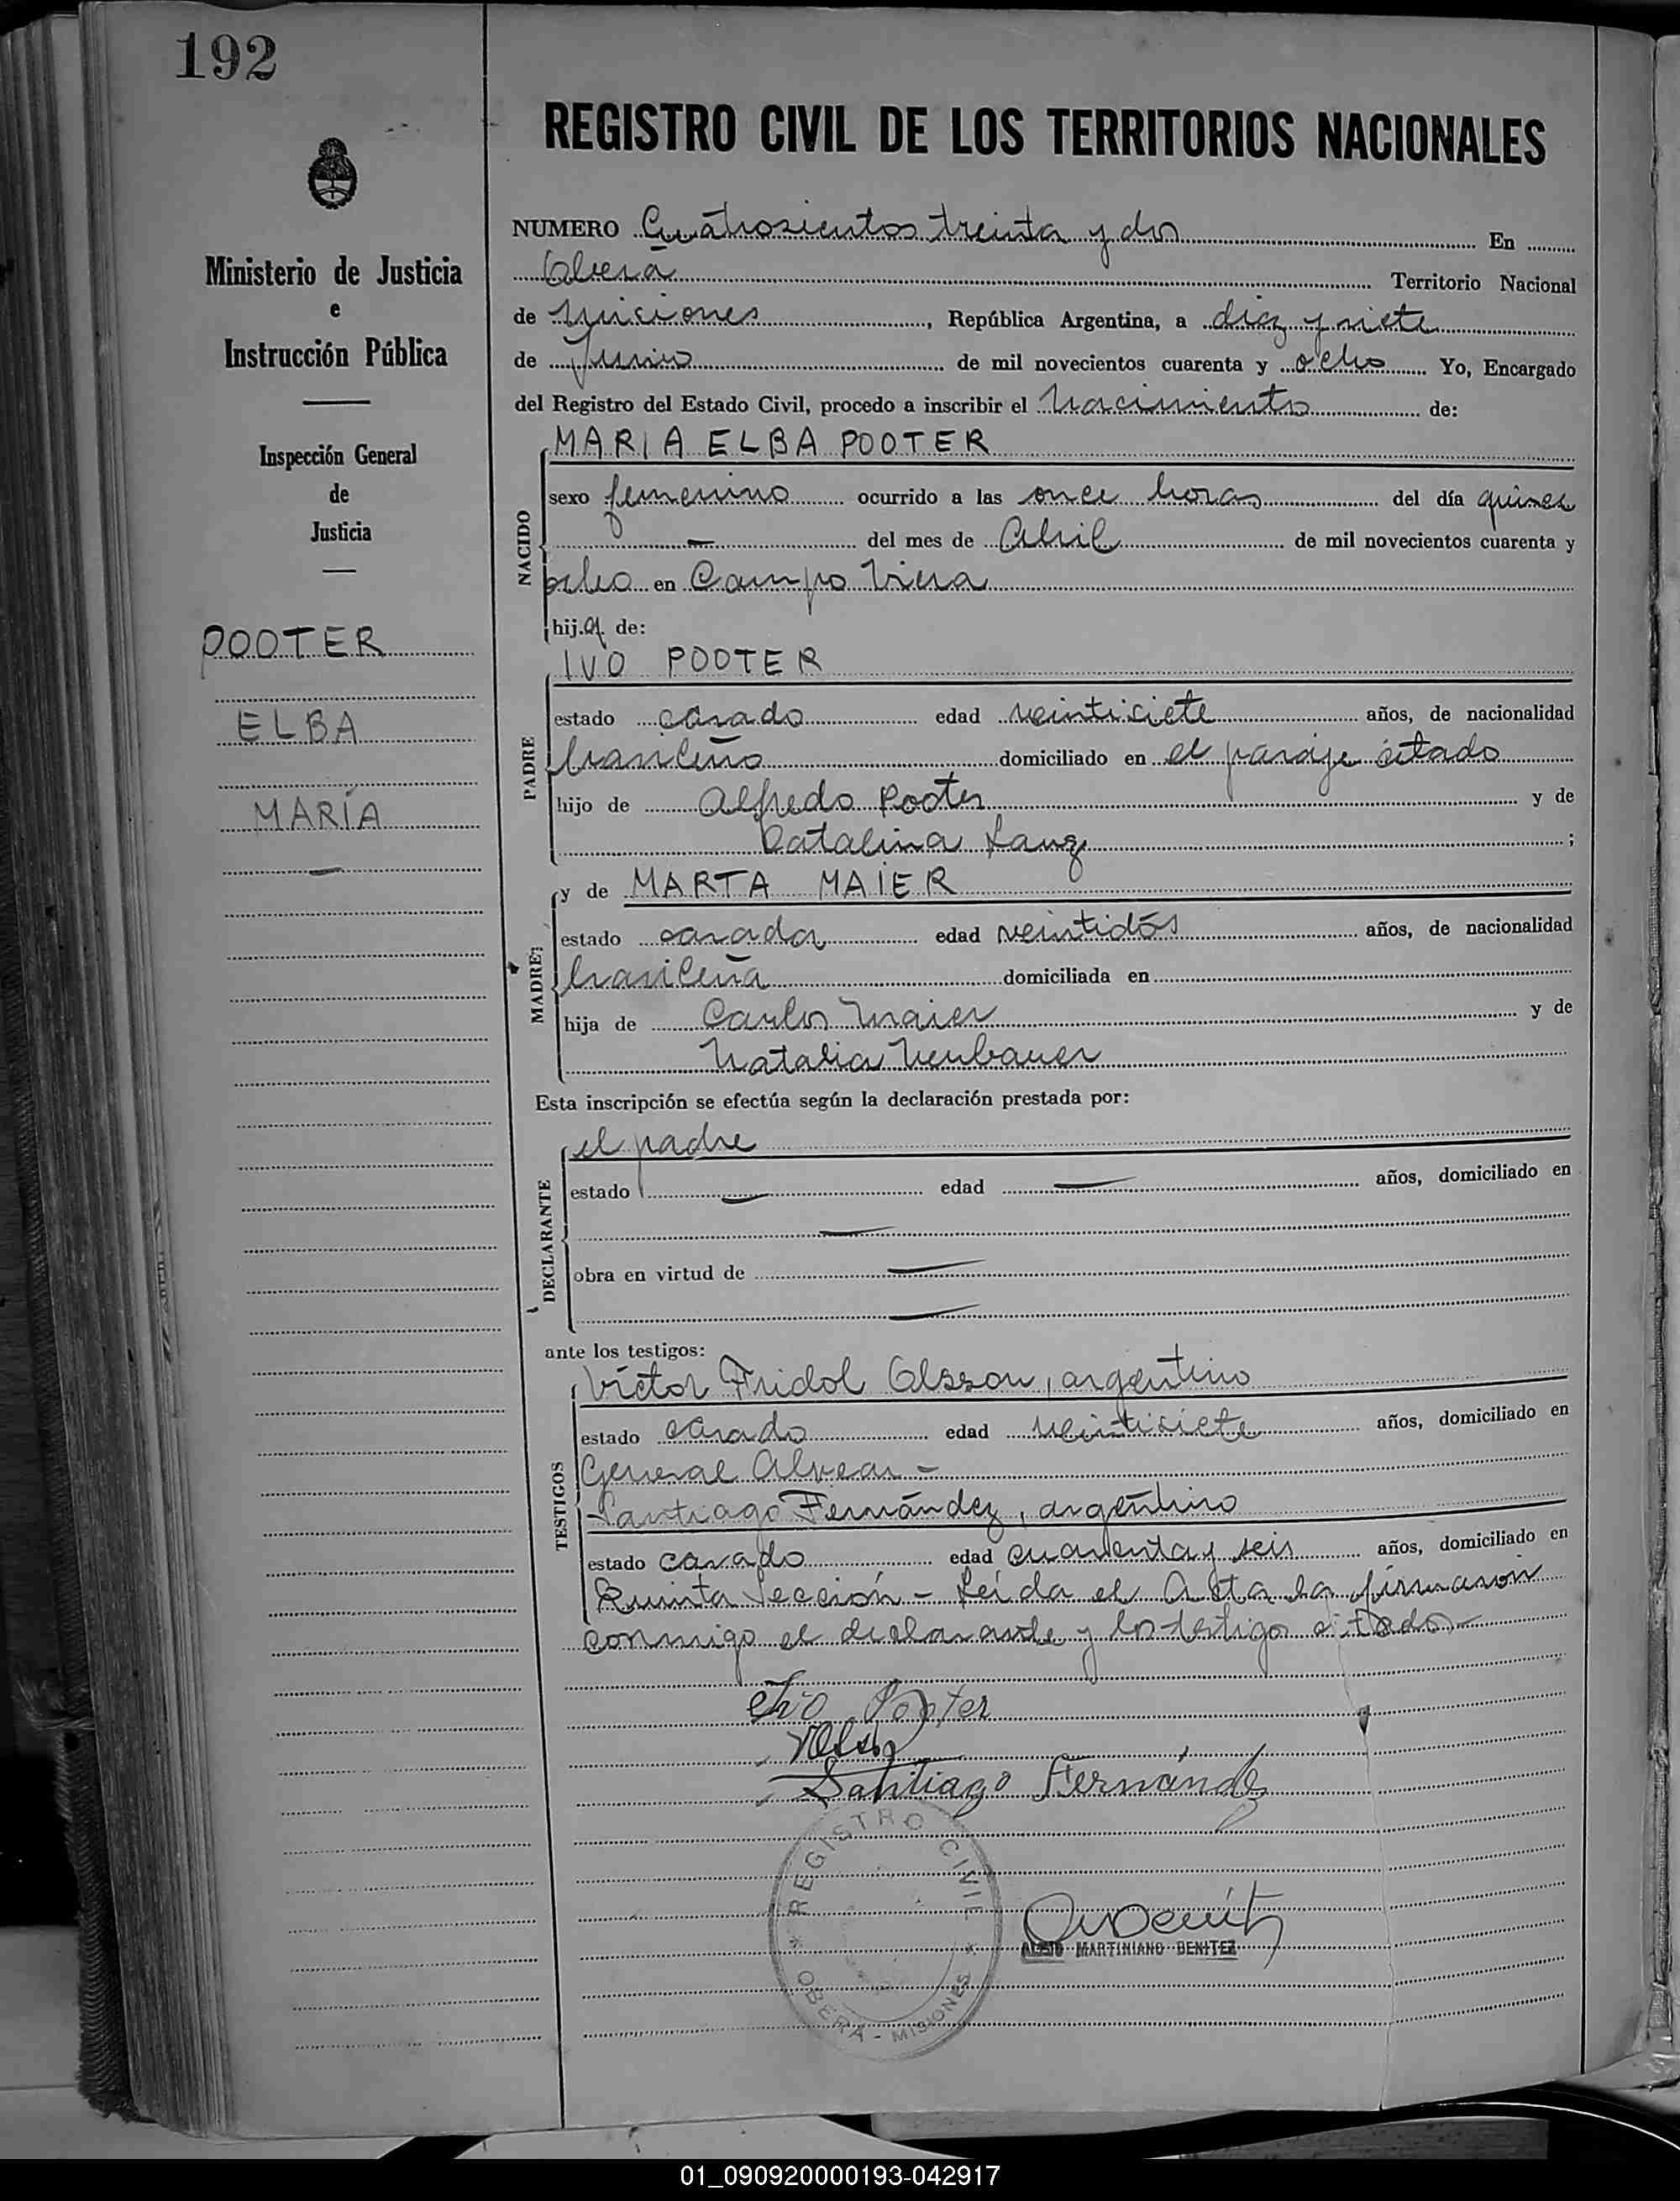 192
REGISTRO CIVIL DE LOS TERRITORIOS NACIONALES
Ministerio de Justicia
e
Instrucción Pública
Inspección General
de
Justicia
POOTER
ELBA
MARÍA
NUMERO Cuatrosientos treinta y dos En
Oberá Territorio Nacional
de Misiones, República Argentina, a diez y siete
de Junio de mil novecientos cuarenta y ocho Yo, Encargado
del Registro del Estado Civil, procedo a inscribir el Nacimiento de:
NACIDO
MARIA ELBA POOTER
sexo femenino ocurrido a las once horas del día quince
— del mes de Abril de mil novecientos cuarenta y
ocho en Campo Viera
hija de:
PADRE
IVO POOTER
estado casado edad veintisiete años, de nacionalidad
brasileño domiciliado en el paraje citado
hijo de Alfredo Pooter y de
Catalina Lang ;
MADRE
y de MARTA MAIER
estado casada edad veintidós años, de nacionalidad
brasileña domiciliada en
hija de Carlos Maier y de
Natalia Neubauer
Esta inscripción se efectúa según la declaración prestada por:
DECLARANTE
el padre
estado — edad — años, domiciliado en
—
obra en virtud de —
—
ante los testigos:
TESTIGOS
Víctor Fridol Olsson, argentino
estado casado edad veintisiete años, domiciliado en
General Alvear -
Santiago Fernández, argentino
estado casado edad cuarenta y seis años, domiciliado en
Quinta Sección - Leída el Acta la firmaron
conmigo el declarante y los testigos citados -
Ivo Pooter
Santiago Fernández
REGISTRO CIVIL
* OBERÁ - MISIONES *
MARTINIANO BENITEZ
01_090920000193-042917